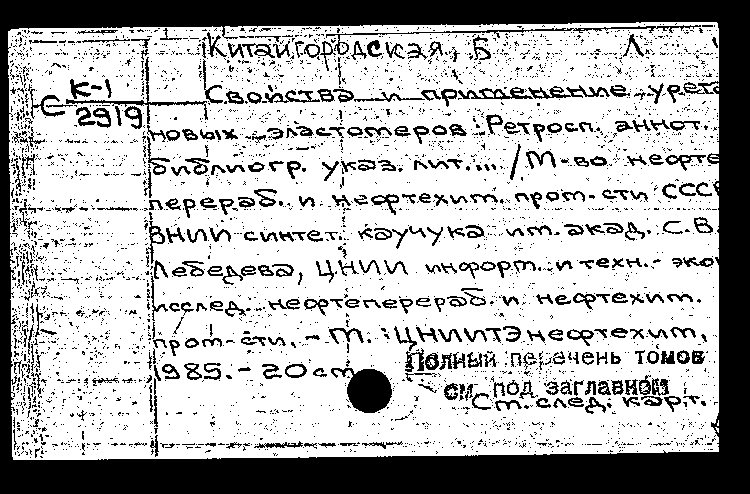 Китайгородская, Б Л
С К-1
2919
Свойства и применение урета
новых эластомеров: Ретросп. аннот.
библиогр. указ. лит.... / М-во нефте
перераб. и нефтехим. пром-сти СССР
ВНИИ синтет. каучука им. акад. С.В.
Лебедева, ЦНИИ информ. и техн.-эко
исслед. нефтеперераб. и нефтехим.
пром-сти. - М. : ЦНИИТЭнефтехим,
1985. - 20 см
Полный перечень томов
см. под заглавием
См. след. карт.